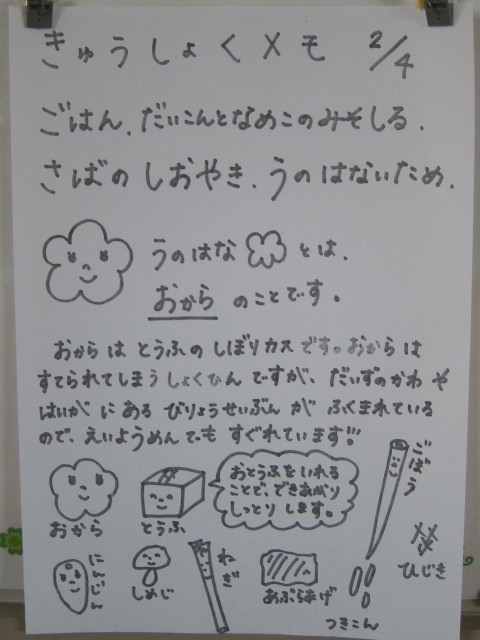 きゅうしょくメモ 2/4
ごはん、だいこんとなめこのみそしる、
さばのしおやき、うのはないため、
うのはな とは、
おから のことです。
おからは とうふの しぼりカスです。おからは
すてられてしまう しょくひん ですが、だいずのかわ や
はいが にある びりょうせいぶん が ふくまれている
ので、えいようめんでも すぐれています!!!
おから
とうふ
おとうふをいれる
ことで、できあがり
しっとり します。
ごぼう
ひじき
にんじん
しめじ
ねぎ
あぶらあげ
つきこん